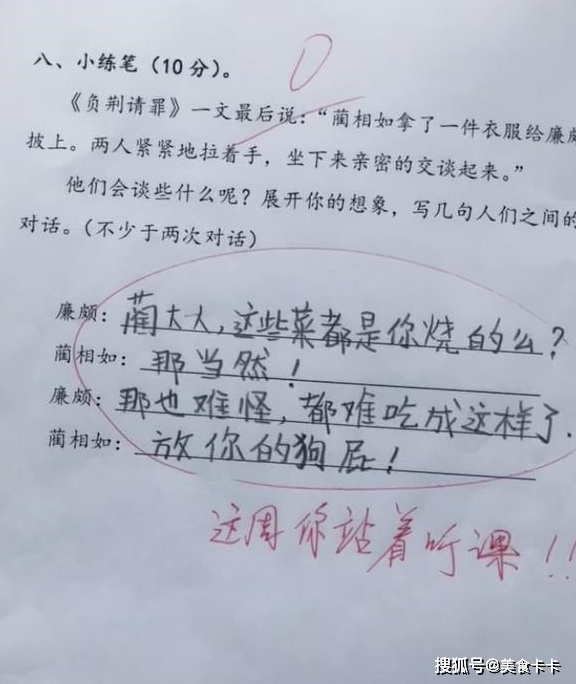 0
八、小练笔（10分）。
《负荆请罪》一文最后说：“蔺相如拿了一件衣服给廉颇
披上。两人紧紧地拉着手，坐下来亲密的交谈起来。”
他们会谈些什么呢？展开你的想象，写几句人们之间的
对话。（不少于两次对话）
廉颇：蔺大大，这些菜都是你烧的么？
蔺相如：那当然！
廉颇：那也难怪，都难吃成这样了.
蔺相如：放你的狗屁！
这周你站着听课！！
搜狐号@美食卡卡